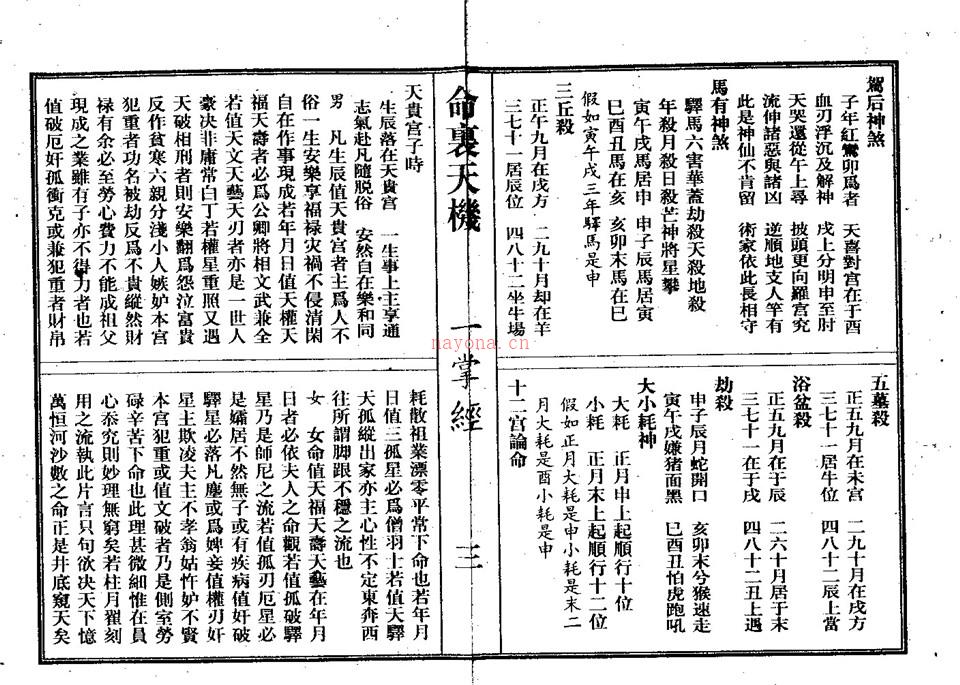 駕后神煞
子年紅鸞卯爲者 天喜對宫在于酉
血刃浮沉及解神 戌上分明申至肘
天哭還從午上尋 披頭更向羅宫究
流伸諸惡與諸凶 逆順地支人竿有
此是神仙不肯留 術家依此長相守
馬有神煞
驛馬六害華蓋劫殺天殺地殺
年殺月殺日殺芒神將星攀
寅午戌馬居申 申子辰馬居寅
巳酉丑馬在亥 亥卯末馬在巳
假如寅午戌三年驛馬是申
三丘殺
正午九月在戌方 二九十月却在羊
三七十一居辰位 四八十二坐牛場
五墓殺
正五九月在未宫 二九十月在戌方
三七十一居牛位 四八十二辰上當
浴盆殺
正五九月在于辰 二六十月居于末
三七十一在于戌 四八十二丑上遇
劫殺
申子辰月蛇開口 亥卯末兮猴速走
寅午戌嫌猪面黑 巳酉丑怕虎跑吼
大小耗神
大耗 正月申上起順行十位
小耗 正月末上起順行十二位
假如正月大耗是申小耗是末二
月大耗是酉小耗是申
十二宫論命
命裏天機 一掌經 三
天貴宫子時
生辰落在天貴宫 一生事上主享通
志氣赴凡隨脱俗 安然自在樂和同
男 凡生辰值天貴宫者主爲人不
俗一生安樂享福禄灾禍不侵清閑
自在作事現成若年月日值天權天
福天壽者必爲公卿將相文武兼全
若值天文天藝天刃者亦是一世人
豪决非庸常白丁若權星重照又遇
天破相刑者則安樂翻爲怨泣富貴
反作貧寒六親分淺小人嫉妒本宫
犯重者功名被劫反爲不貴縱然財
禄有余必至勞心費力不能成祖父
現成之業雖有子亦不得力者也若
值破厄奸孤衝克或兼犯重者財帛
耗散祖業漂零平常下命也若年月
日值三孤星必爲僧羽士若值天驛
天孤縱出家亦主心性不定東奔西
往所謂脚跟不穩之流也
女 女命值天福天壽天藝在年月
日者必依夫人之命觀若值孤破驛
星乃是師尼之流若值孤刃厄星必
是孀居不然無子或有疾病值奸破
驛星必落凡塵或爲婢妾值權刃奸
星主欺凌夫主不孝翁姑忤妒不賢
本宫犯重或值文破者乃是側室勞
碌辛苦下命也此理甚微細惟在員
心忝究則妙理無窮矣若柱月窄刻
用之流執此片言只句欲决天下憶
萬恒河沙數之命正是井底窺天矣
nayona.cn